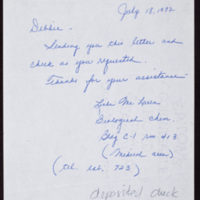 July 18, 1972
Debbie.
Sending you this letter and
check as you requested.
Thanks for your assistance
Mc
Biological Chem.
Bldg C-1 rm 413
(Medical area)
(tel. ext. 723)
deposited check